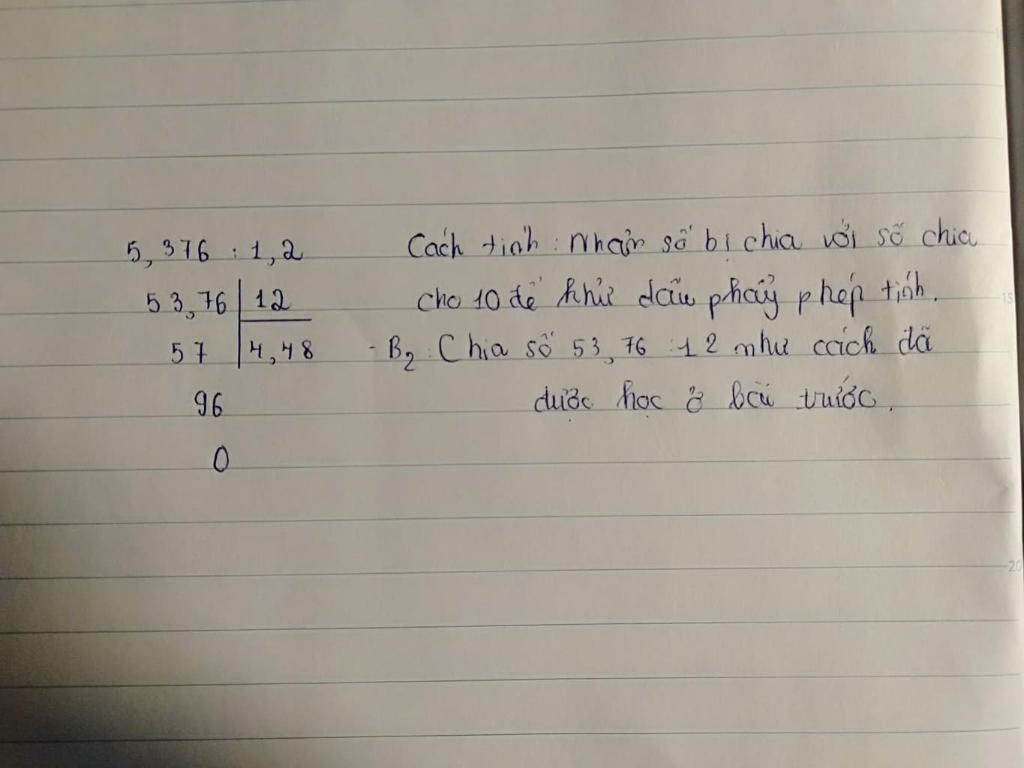 5,376 : 1,2
53,76 12
57 4,48
96
0
Cách tính : Nhân số bị chia với số chia
cho 10 để khử dấu phẩy phép tính.
- B2 : Chia số 53,76 : 12 như cách đã
được học ở bài trước.